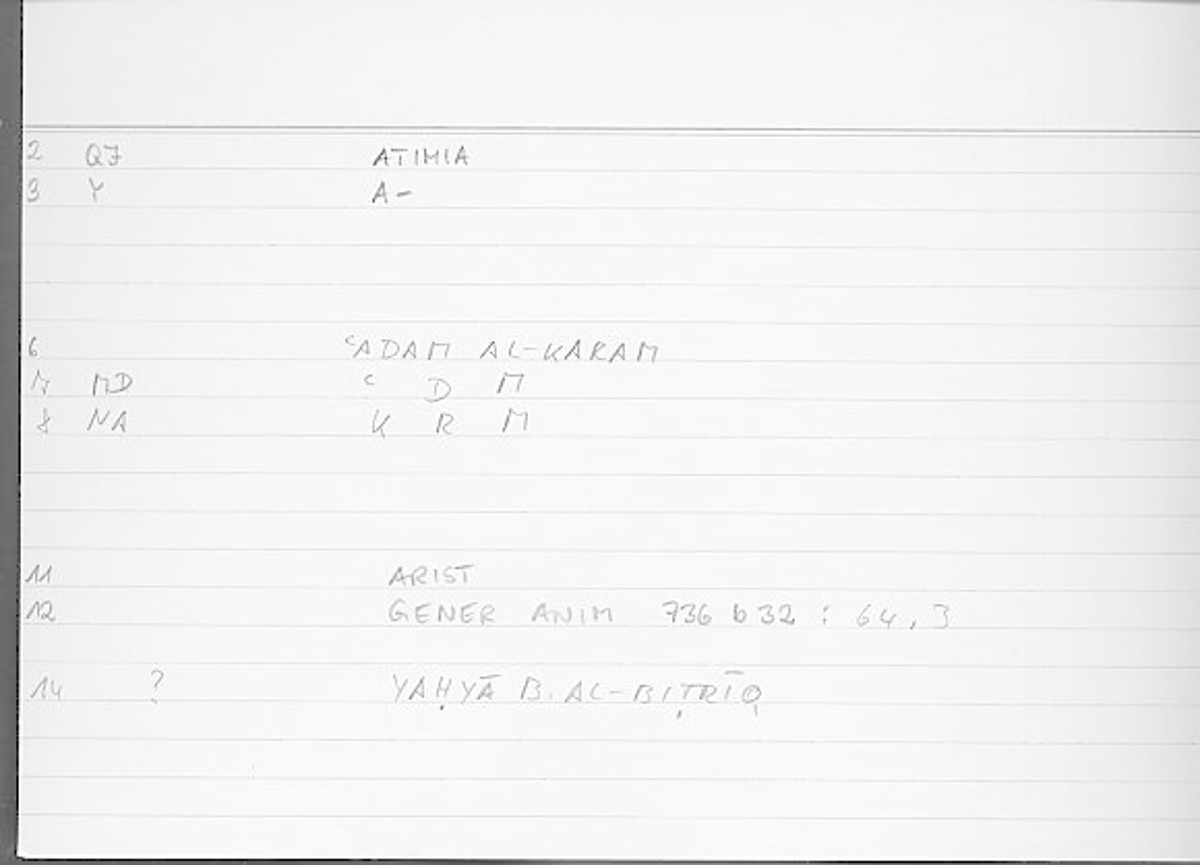 2 QJ ATIMIA
3 Y A-
6 ʿADAM AL-KARAM
7 MD ʿ D M
8 NA K R M
11 ARIST
12 GENER ANIM 736 b 32 : 64, 3
14 ? YAḤYĀ B. AL-BIṬRĪQ